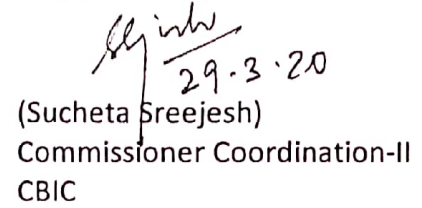 29.3.20
(Sucheta Sreejesh)
Commissioner Coordination-II
CBIC